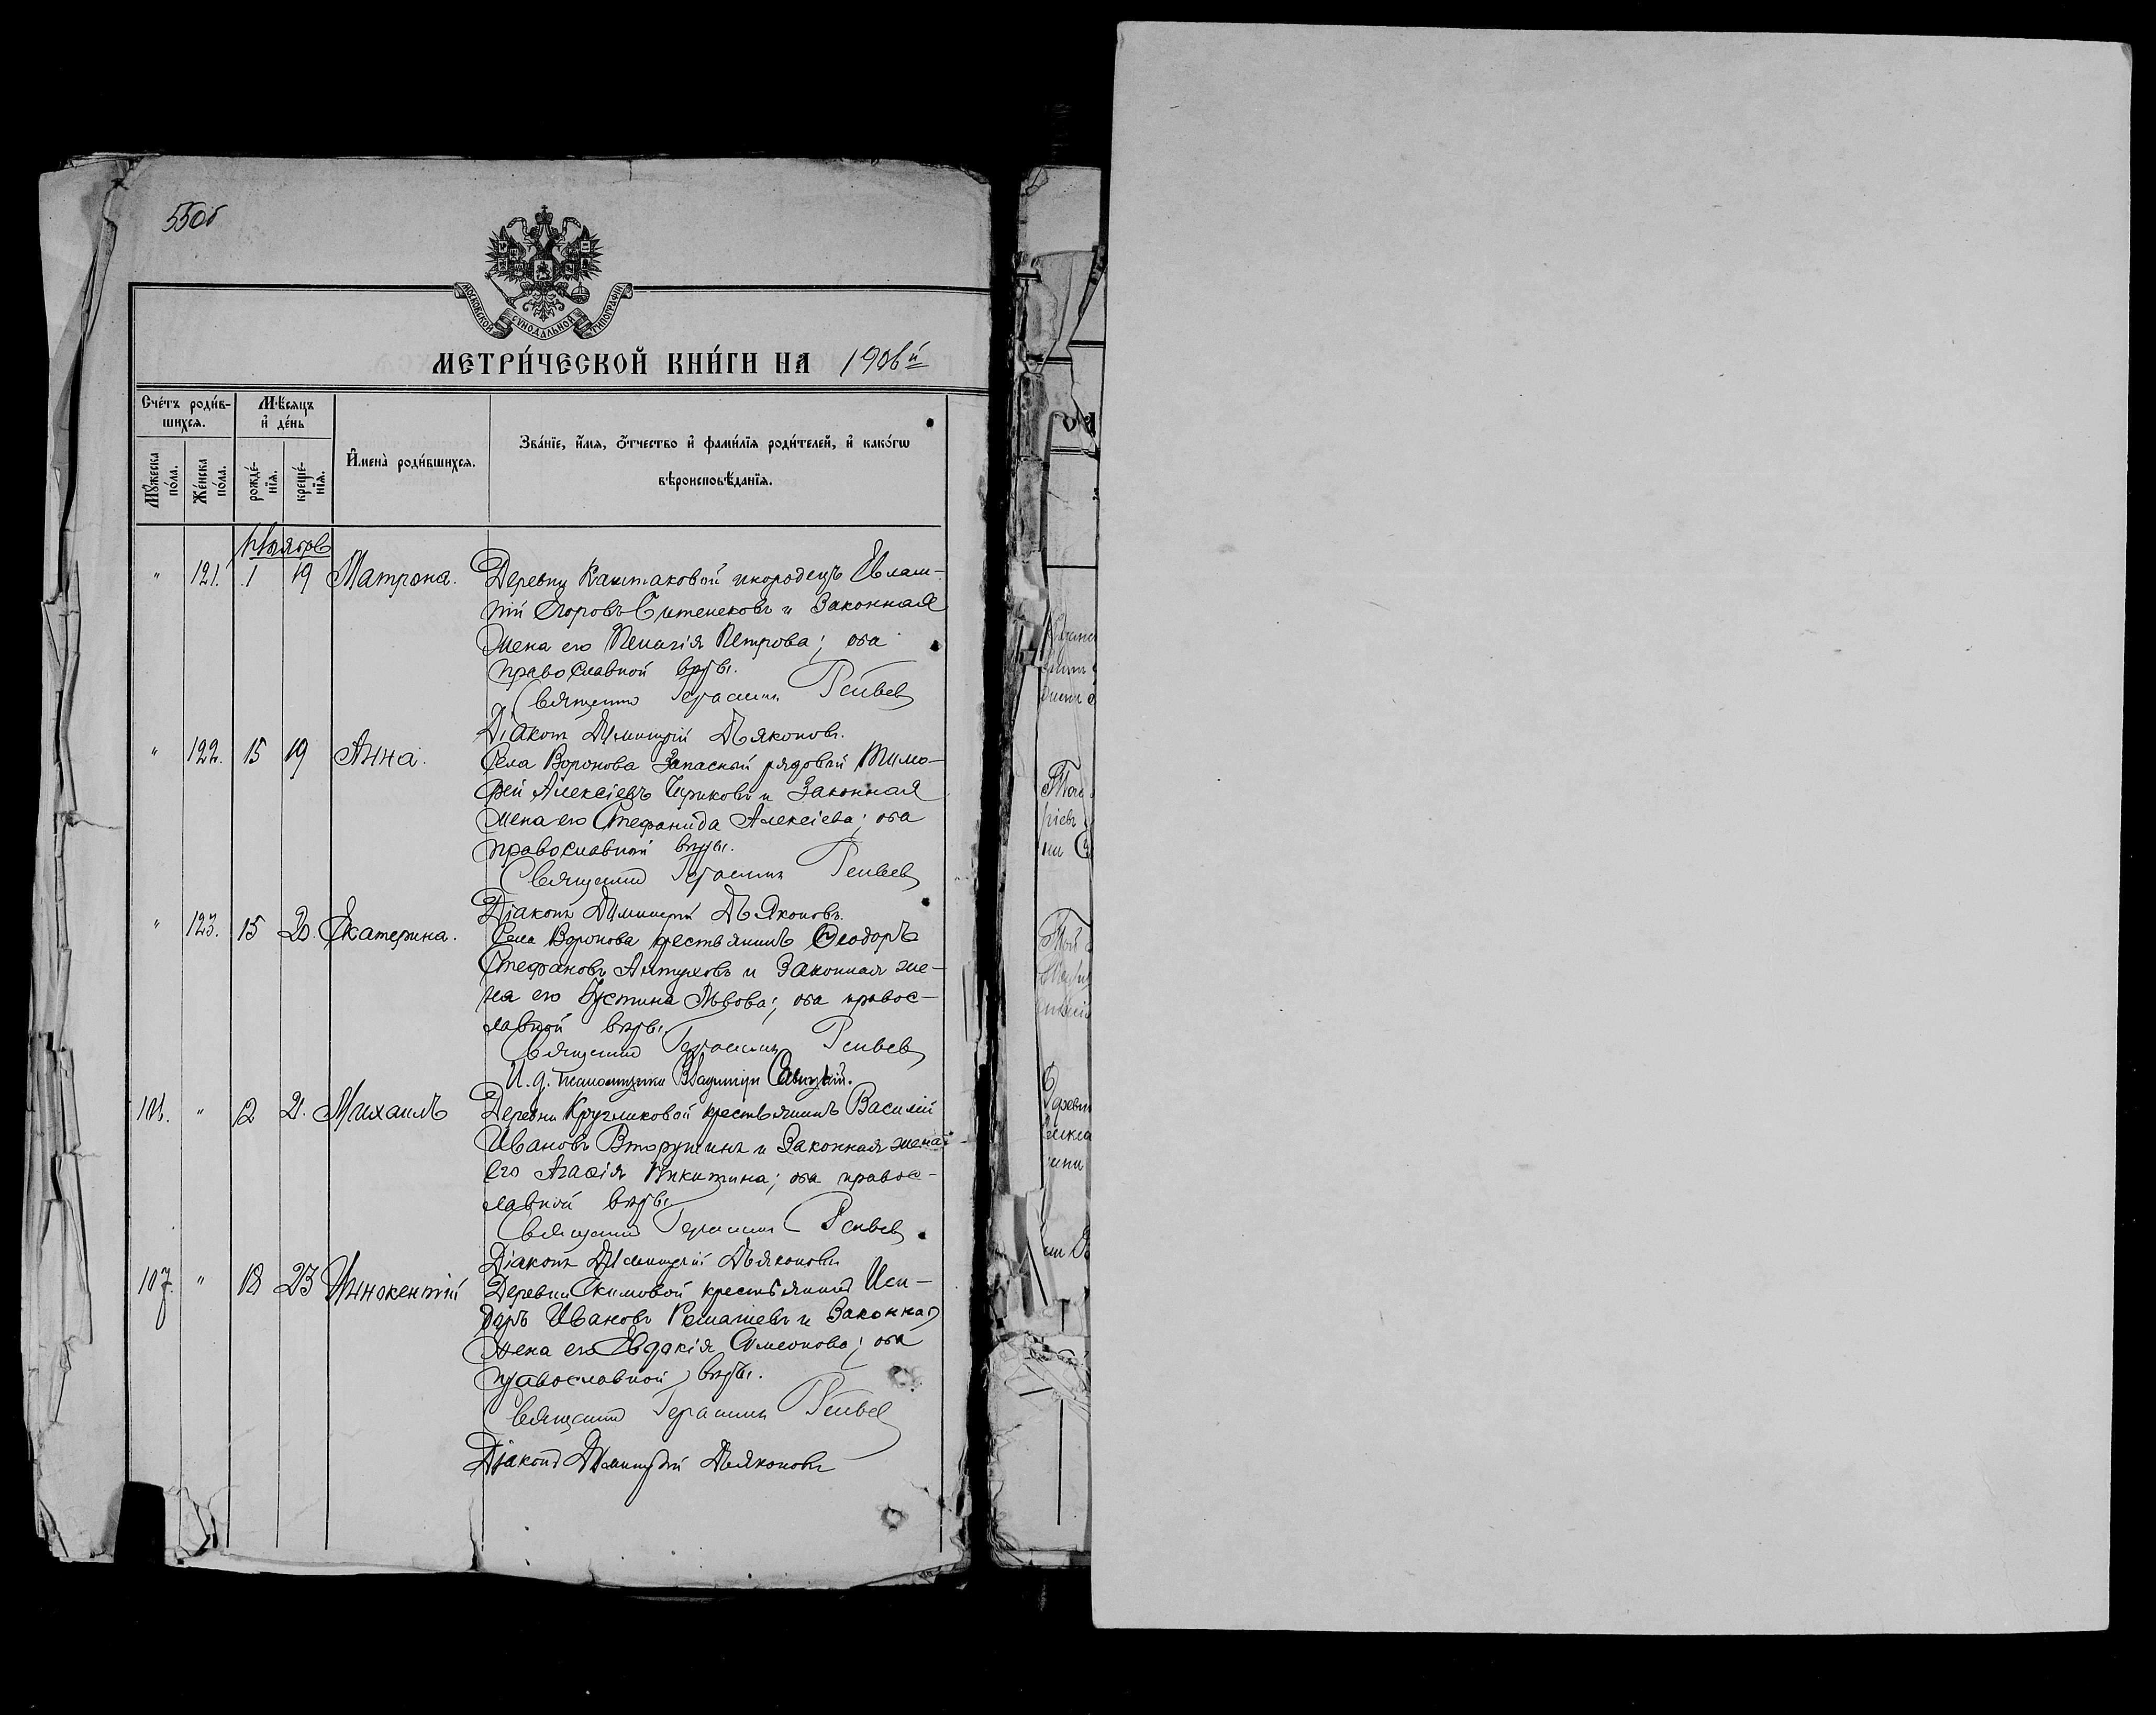 550б
МОСКОВСКОЙ СѴНОДАЛЬНОЙ ТИПОГРАФІИ
МЕТРИ́ЧЕСКОЙ КНИ́ГИ НА 1906й
Сче́тъ роди́в-
шихсѧ.
Мѣ́сѧцъ
и҆ де́нь
И҆мена̀ роди́вшихсѧ.
Зва́нїе, и҆́мѧ, ѻ҆́тчество и҆ фами́лїѧ роди́телей, и҆ како́гѡ
вѣроисповѣ́данїѧ.
Мꙋ́жеска
по́ла.
Же́нска
по́ла.
рожде́-
нїѧ.
креще́-
нїѧ.
Ноябрь
" 121. 1 19 Матрона. Деревни Каштаковой инородецъ Евлам-
пій Егоровъ и законная
жена его Пелагія Петрова; оба
православной вѣры.
Священникъ Герасимъ
Діаконъ Димитрій Дьяконовъ.
" 122. 15 19 Анна. Села Воронова запасный рядовой Тимо-
фей Алексіевъ Чириковъ и законная
жена его Стефанида Алексіева; оба
православной вѣры.
Священникъ Герасимъ
Діаконъ Димитрій Дьяконовъ.
" 123. 15 20. Екатерина. Села Воронова крестьянинъ Ѳеодоръ
Стефановъ Алтуховъ и законная же-
на его Іустина Львова; оба правос-
лавной вѣры.
Священникъ Герасимъ
И. д. псаломщика Владиміръ Савицкій.
106. " 12 21. Михаилъ Деревни Кругликовой крестьянинъ Василій
Ивановъ Вторушинъ и законная жена
его Агафія Никитина; оба правос-
лавной вѣры.
Священникъ Герасимъ
Діаконъ Димитрій Дьяконовъ
107. " 18 23 Иннокентій Деревни Екимовой крестьянинъ Иси-
доръ Ивановъ и законная
жена его Евдокія Симеонова; оба
православной вѣры.
Священникъ Герасимъ
Діаконъ Димитрій Дьяконовъ